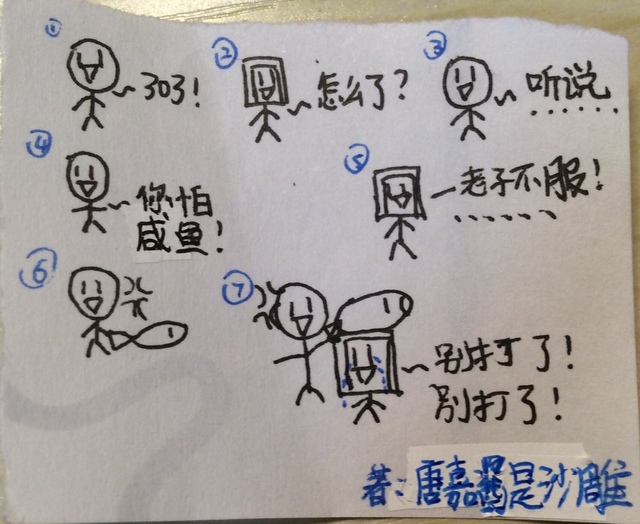 ①
303!
②
怎么了?
③
听说
......
④
你怕
咸鱼!
⑤
老子不服!
......
⑥
⑦
别打了!
别打了!
著:唐嘉是沙雕